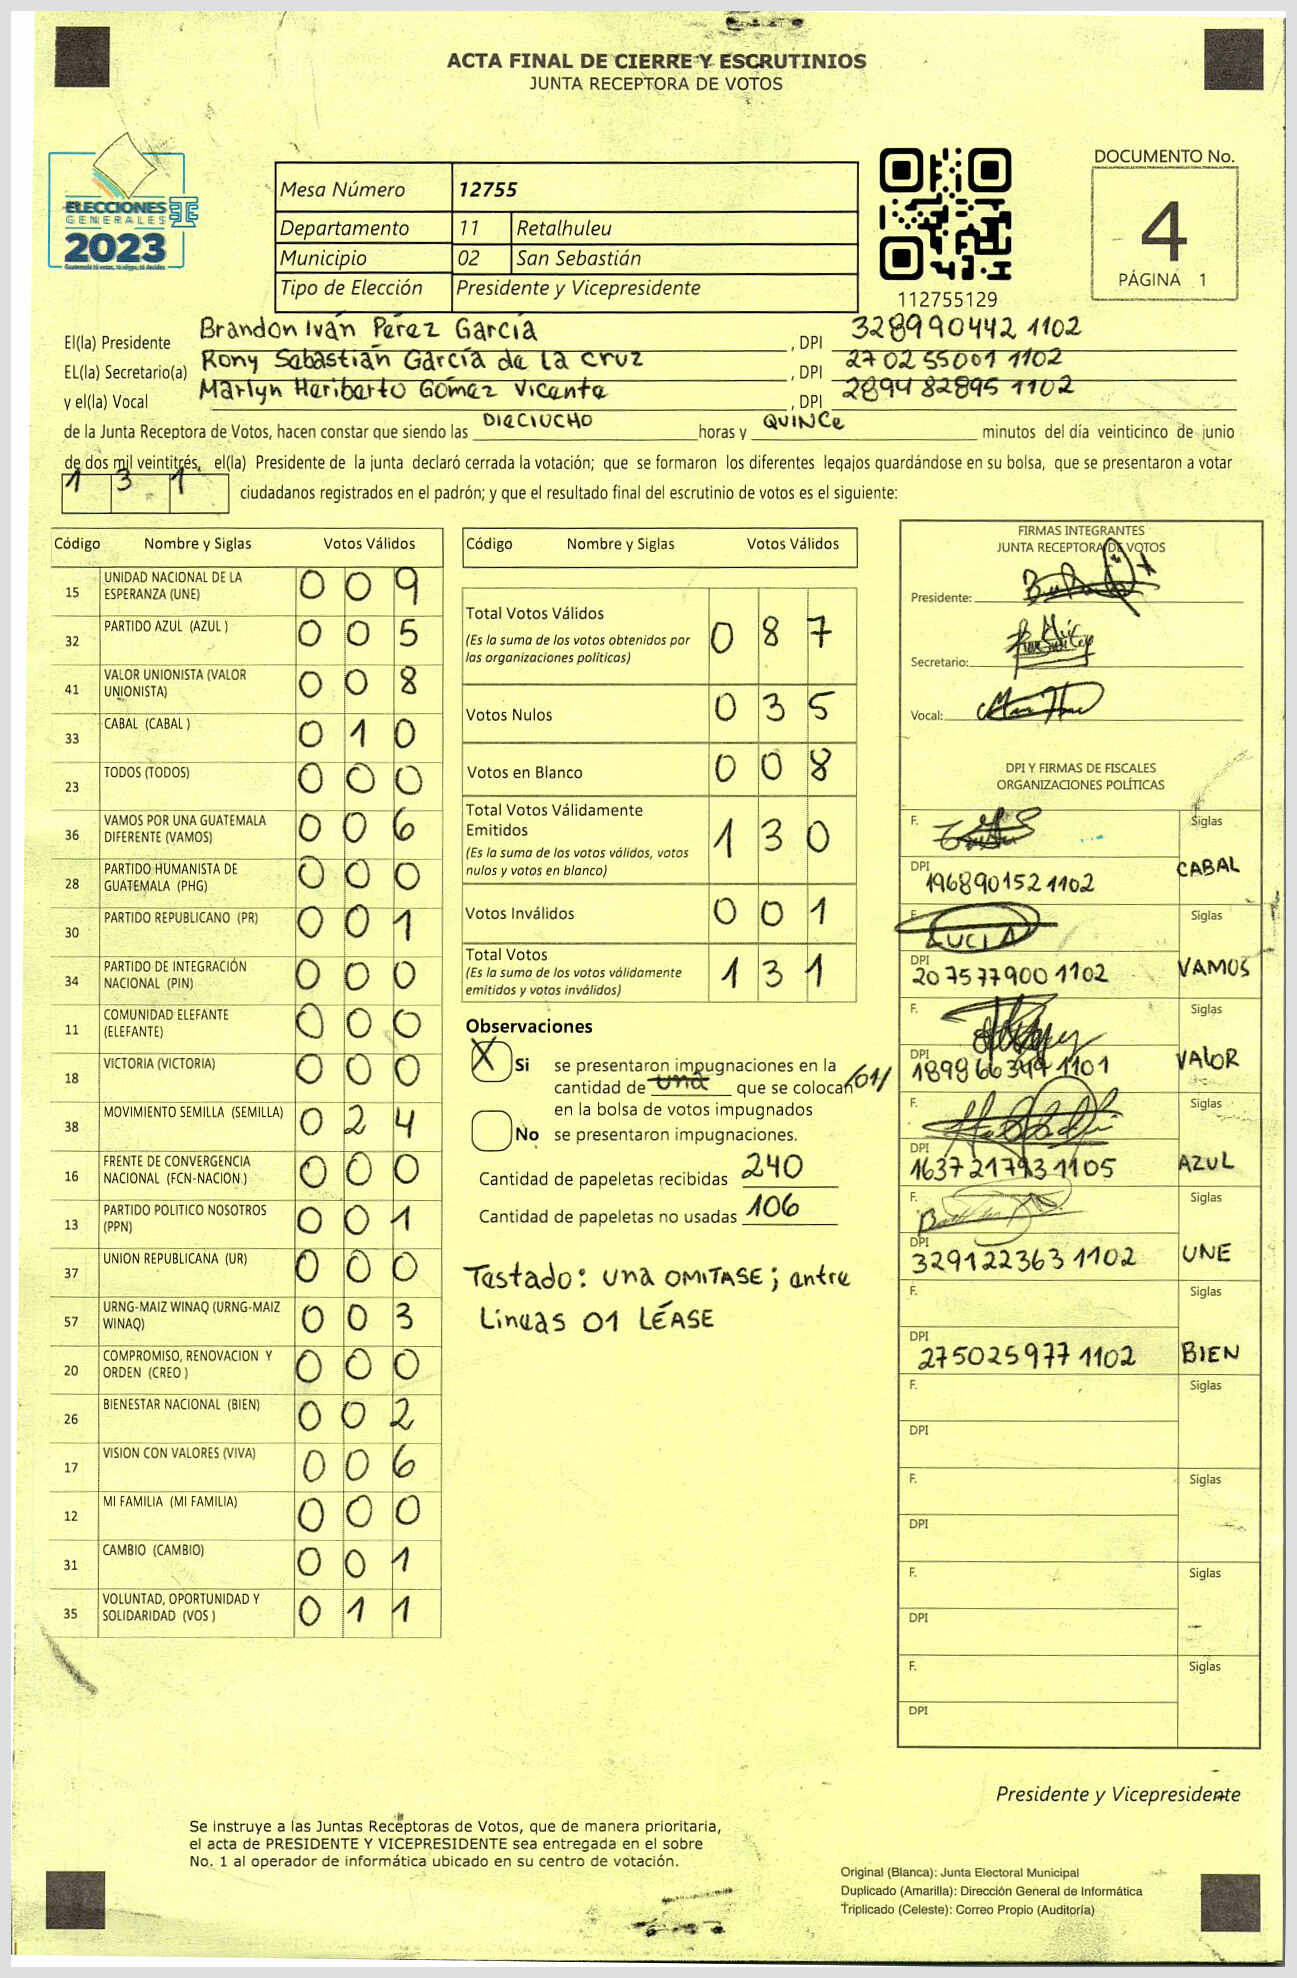 ACTA FINAL DE CIERRE Y ESCRUTINIOS
JUNTA RECEPTORA DE VOTOS
ELECCIONES
GENERALES
2023
Mesa Número 12755
Departamento 11 Retalhuleu
Municipio 02 San Sebastián
Tipo de Elección Presidente y Vicepresidente
112755129
DOCUMENTO No.
4
PÁGINA 1
El(la) Presidente Brandon Iván Pérez García, DPI 328990442 1102
EL(la) Secretario(a) Rony Sebastián García de La Cruz, DPI 270255001 1102
y el(la) Vocal Marlyn Heriberto Gómez Vicente, DPI 289482895 1102
de la Junta Receptora de Votos, hacen constar que siendo las DIECIUCHO horas y QUINCE minutos del día veinticinco de junio
de dos mil veintitrés, el(la) Presidente de la junta declaró cerrada la votación; que se formaron los diferentes legajos guardándose en su bolsa, que se presentaron a votar
1 3 1 ciudadanos registrados en el padrón; y que el resultado final del escrutinio de votos es el siguiente:
Código Nombre y Siglas Votos Válidos
15 UNIDAD NACIONAL DE LA ESPERANZA (UNE) 0 0 9
32 PARTIDO AZUL (AZUL ) 0 0 5
41 VALOR UNIONISTA (VALOR UNIONISTA) 0 0 8
33 CABAL (CABAL ) 0 1 0
23 TODOS (TODOS) 0 0 0
36 VAMOS POR UNA GUATEMALA DIFERENTE (VAMOS) 0 0 6
28 PARTIDO HUMANISTA DE GUATEMALA (PHG) 0 0 0
30 PARTIDO REPUBLICANO (PR) 0 0 1
34 PARTIDO DE INTEGRACIÓN NACIONAL (PIN) 0 0 0
11 COMUNIDAD ELEFANTE (ELEFANTE) 0 0 0
18 VICTORIA (VICTORIA) 0 0 0
38 MOVIMIENTO SEMILLA (SEMILLA) 0 2 4
16 FRENTE DE CONVERGENCIA NACIONAL (FCN-NACION ) 0 0 0
13 PARTIDO POLITICO NOSOTROS (PPN) 0 0 1
37 UNION REPUBLICANA (UR) 0 0 0
57 URNG-MAIZ WINAQ (URNG-MAIZ WINAQ) 0 0 3
20 COMPROMISO, RENOVACION Y ORDEN (CREO ) 0 0 0
26 BIENESTAR NACIONAL (BIEN) 0 0 2
17 VISION CON VALORES (VIVA) 0 0 6
12 MI FAMILIA (MI FAMILIA) 0 0 0
31 CAMBIO (CAMBIO) 0 0 1
35 VOLUNTAD, OPORTUNIDAD Y SOLIDARIDAD (VOS ) 0 1 1
Código Nombre y Siglas Votos Válidos
Total Votos Válidos 0 8 7
(Es la suma de los votos obtenidos por
las organizaciones políticas)
Votos Nulos 0 3 5
Votos en Blanco 0 0 8
Total Votos Válidamente
Emitidos 1 3 0
(Es la suma de los votos válidos, votos
nulos y votos en blanco)
Votos Inválidos 0 0 1
Total Votos 1 3 1
(Es la suma de los votos válidamente
emitidos y votos inválidos)
Observaciones
X Si se presentaron impugnaciones en la
cantidad de una que se colocan /01/
en la bolsa de votos impugnados
No se presentaron impugnaciones.
Cantidad de papeletas recibidas 240
Cantidad de papeletas no usadas 106
Testado: una OMITASE; entre
Lineas 01 LÉASE
FIRMAS INTEGRANTES
JUNTA RECEPTORA DE VOTOS
Presidente:
Secretario:
Vocal:
DPI Y FIRMAS DE FISCALES
ORGANIZACIONES POLÍTICAS
F. Siglas
DPI 196890152 1102 CABAL
F. LUCIA Siglas
DPI 207577900 1102 VAMOS
F. Siglas
DPI 189866349 1101 VALOR
F. Siglas
DPI 163721793 1105 AZUL
F. Siglas
DPI 329122363 1102 UNE
F. Siglas
DPI 275025977 1102 BIEN
F. Siglas
DPI
F. Siglas
DPI
F. Siglas
DPI
F. Siglas
DPI
Presidente y Vicepresidente
Se instruye a las Juntas Receptoras de Votos, que de manera prioritaria,
el acta de PRESIDENTE Y VICEPRESIDENTE sea entregada en el sobre
No. 1 al operador de informática ubicado en su centro de votación.
Original (Blanca): Junta Electoral Municipal
Duplicado (Amarilla): Dirección General de Informática
Triplicado (Celeste): Correo Propio (Auditoría)